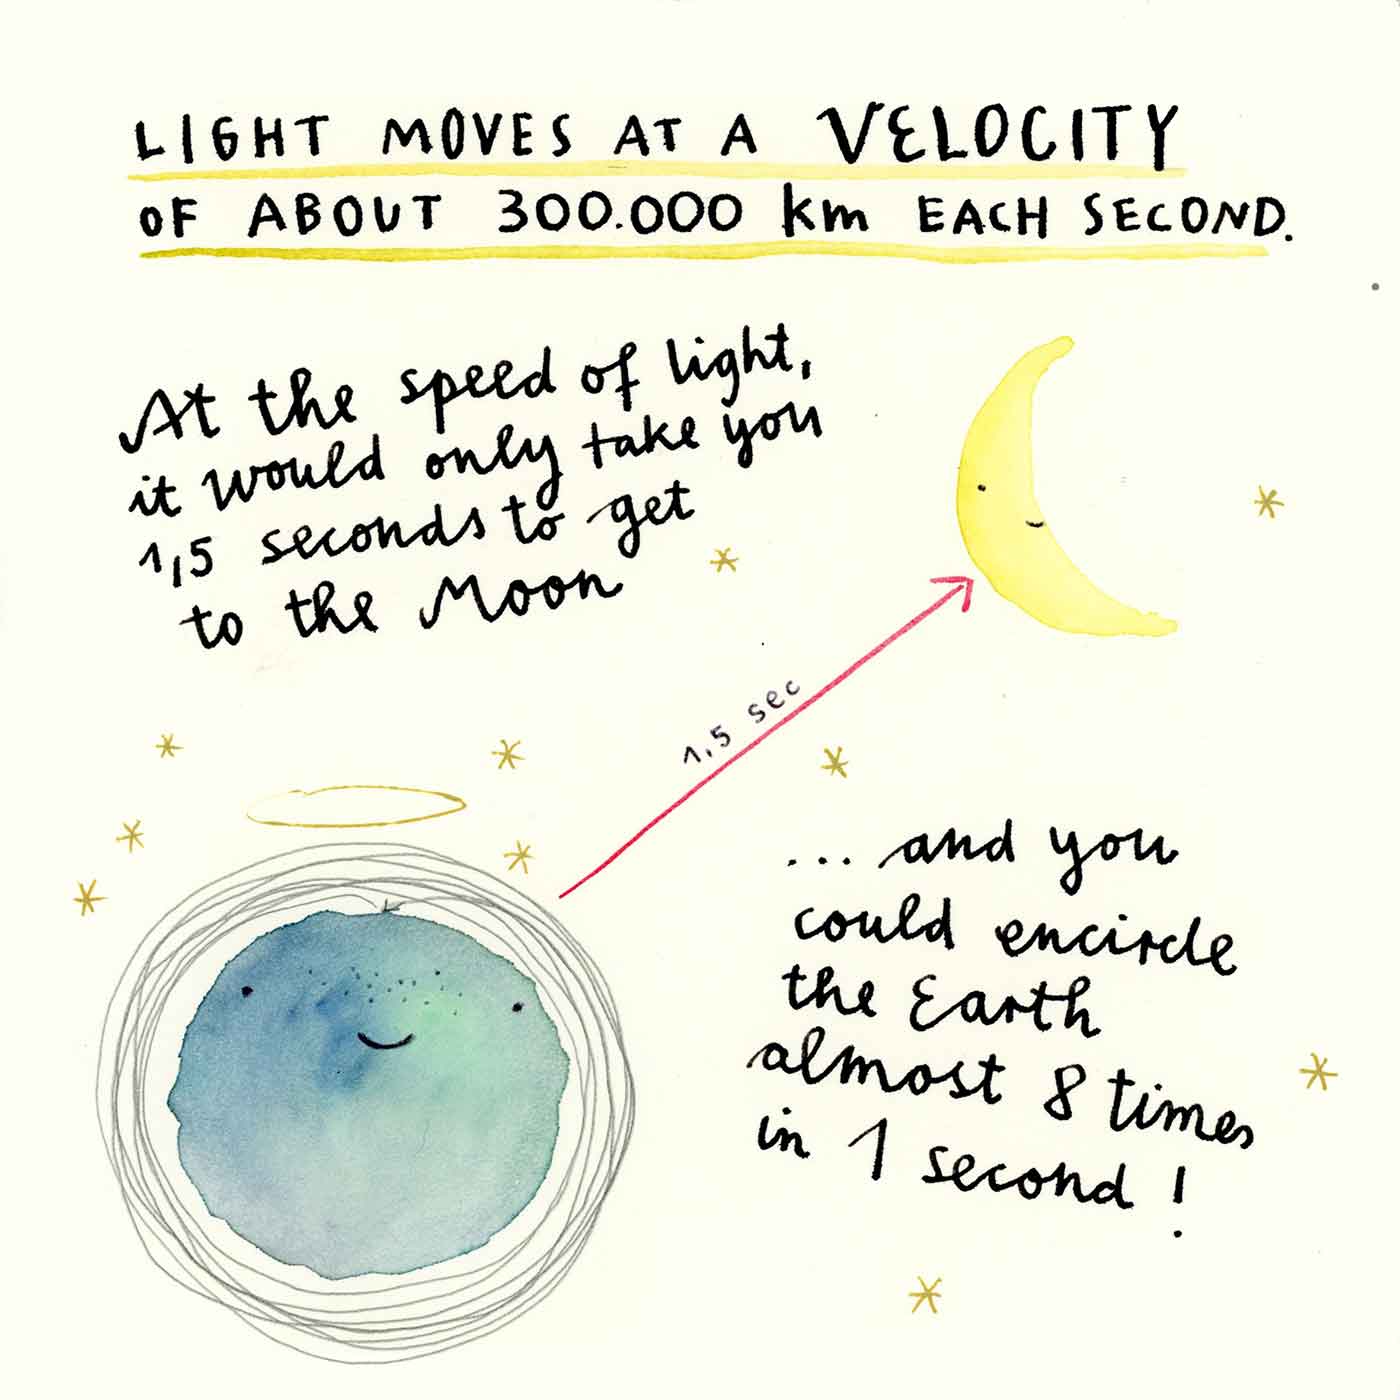 LIGHT MOVES AT A VELOCITY
OF ABOUT 300.000 km EACH SECOND.
At the speed of light,
it would only take you
1,5 seconds to get
to the Moon
1,5 sec
... and you
could encircle
the Earth
almost 8 times
in 1 second!